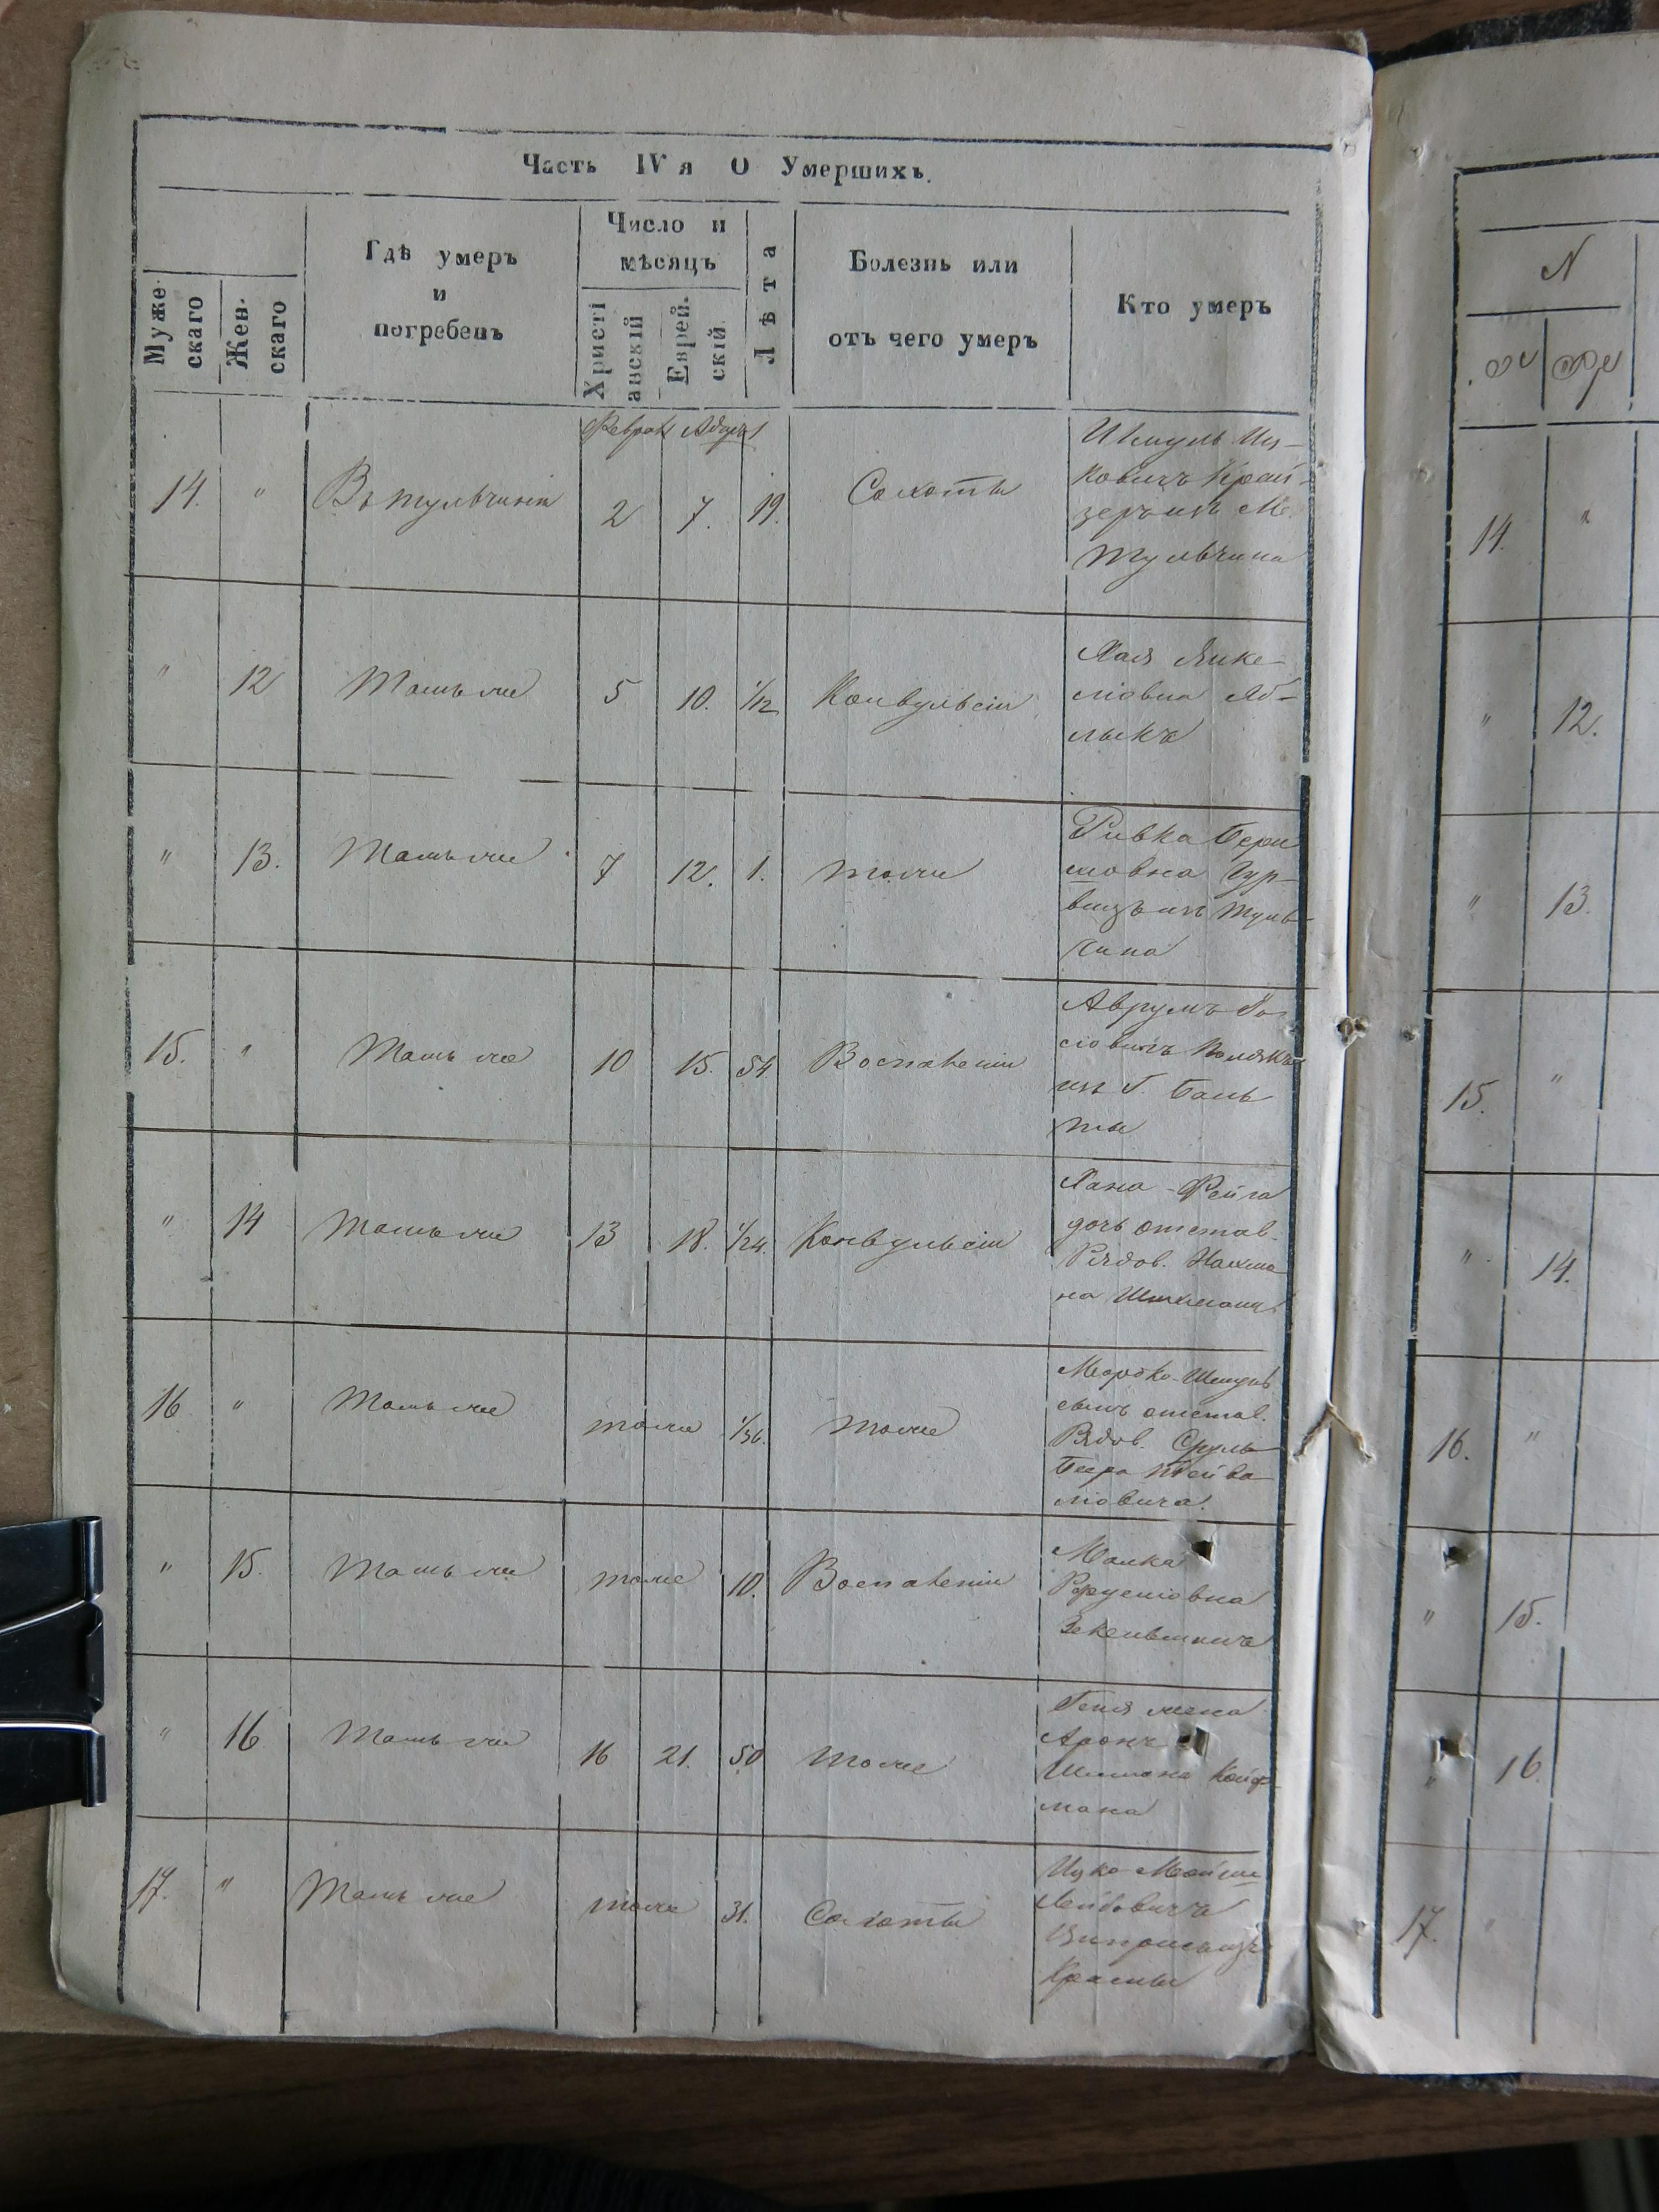 Часть IV я О Умершихъ.
Муже-
скаго
Жен-
скаго
Гдѣ умеръ
и
погребенъ
Число и
мѣсяцъ
Христі
анскій
Еврей-
скій
Лѣта
Болезнь или
отъ чего умеръ
Кто умеръ
Феврал Адаръ 1
14. " Въ Тульчинѣ 2 7. 19. Сухоты
Шмуль Иц-
ковичъ Край-
зеръ изъ М.
Тульчина
" 12 Тамъ же 5 10. 1/12 Конвульсіи
Хая Янке-
ліовна Яб-
лыкъ
" 13. Тамъ же 7 12. 1. тоже
Ривка Бери
шовна Гур-
вицъ изъ Туль-
чина
15. " Тамъ же 10 15. 54 Воспаленіи
Аврумъ
сіовичъ Полякъ
изъ Г. Баль
ты
" 14 Тамъ же 13 18. 1/24. Конвульсіи
Хана-Фейга
дочь отстав.
Рядов. Нахма
на
16 " Тамъ же тоже 1/36. тоже
Мордко-Шмуль
сынъ отстав.
Рядов. Сруль
Бера
ліовича.
" 15. Тамъ же тоже 10. Воспаленіи
Малка
" 16 Тамъ же 16 21. 50 тоже
Геня жена
Аронъ
Шимона Кайф-
мана
17. " Тамъ же тоже 31. Сухоты
Ицко-Мойше
Лейбовичъ
Красны
N
14. "
" 12.
" 13.
15. "
" 14.
16. "
" 15.
" 16.
17. "